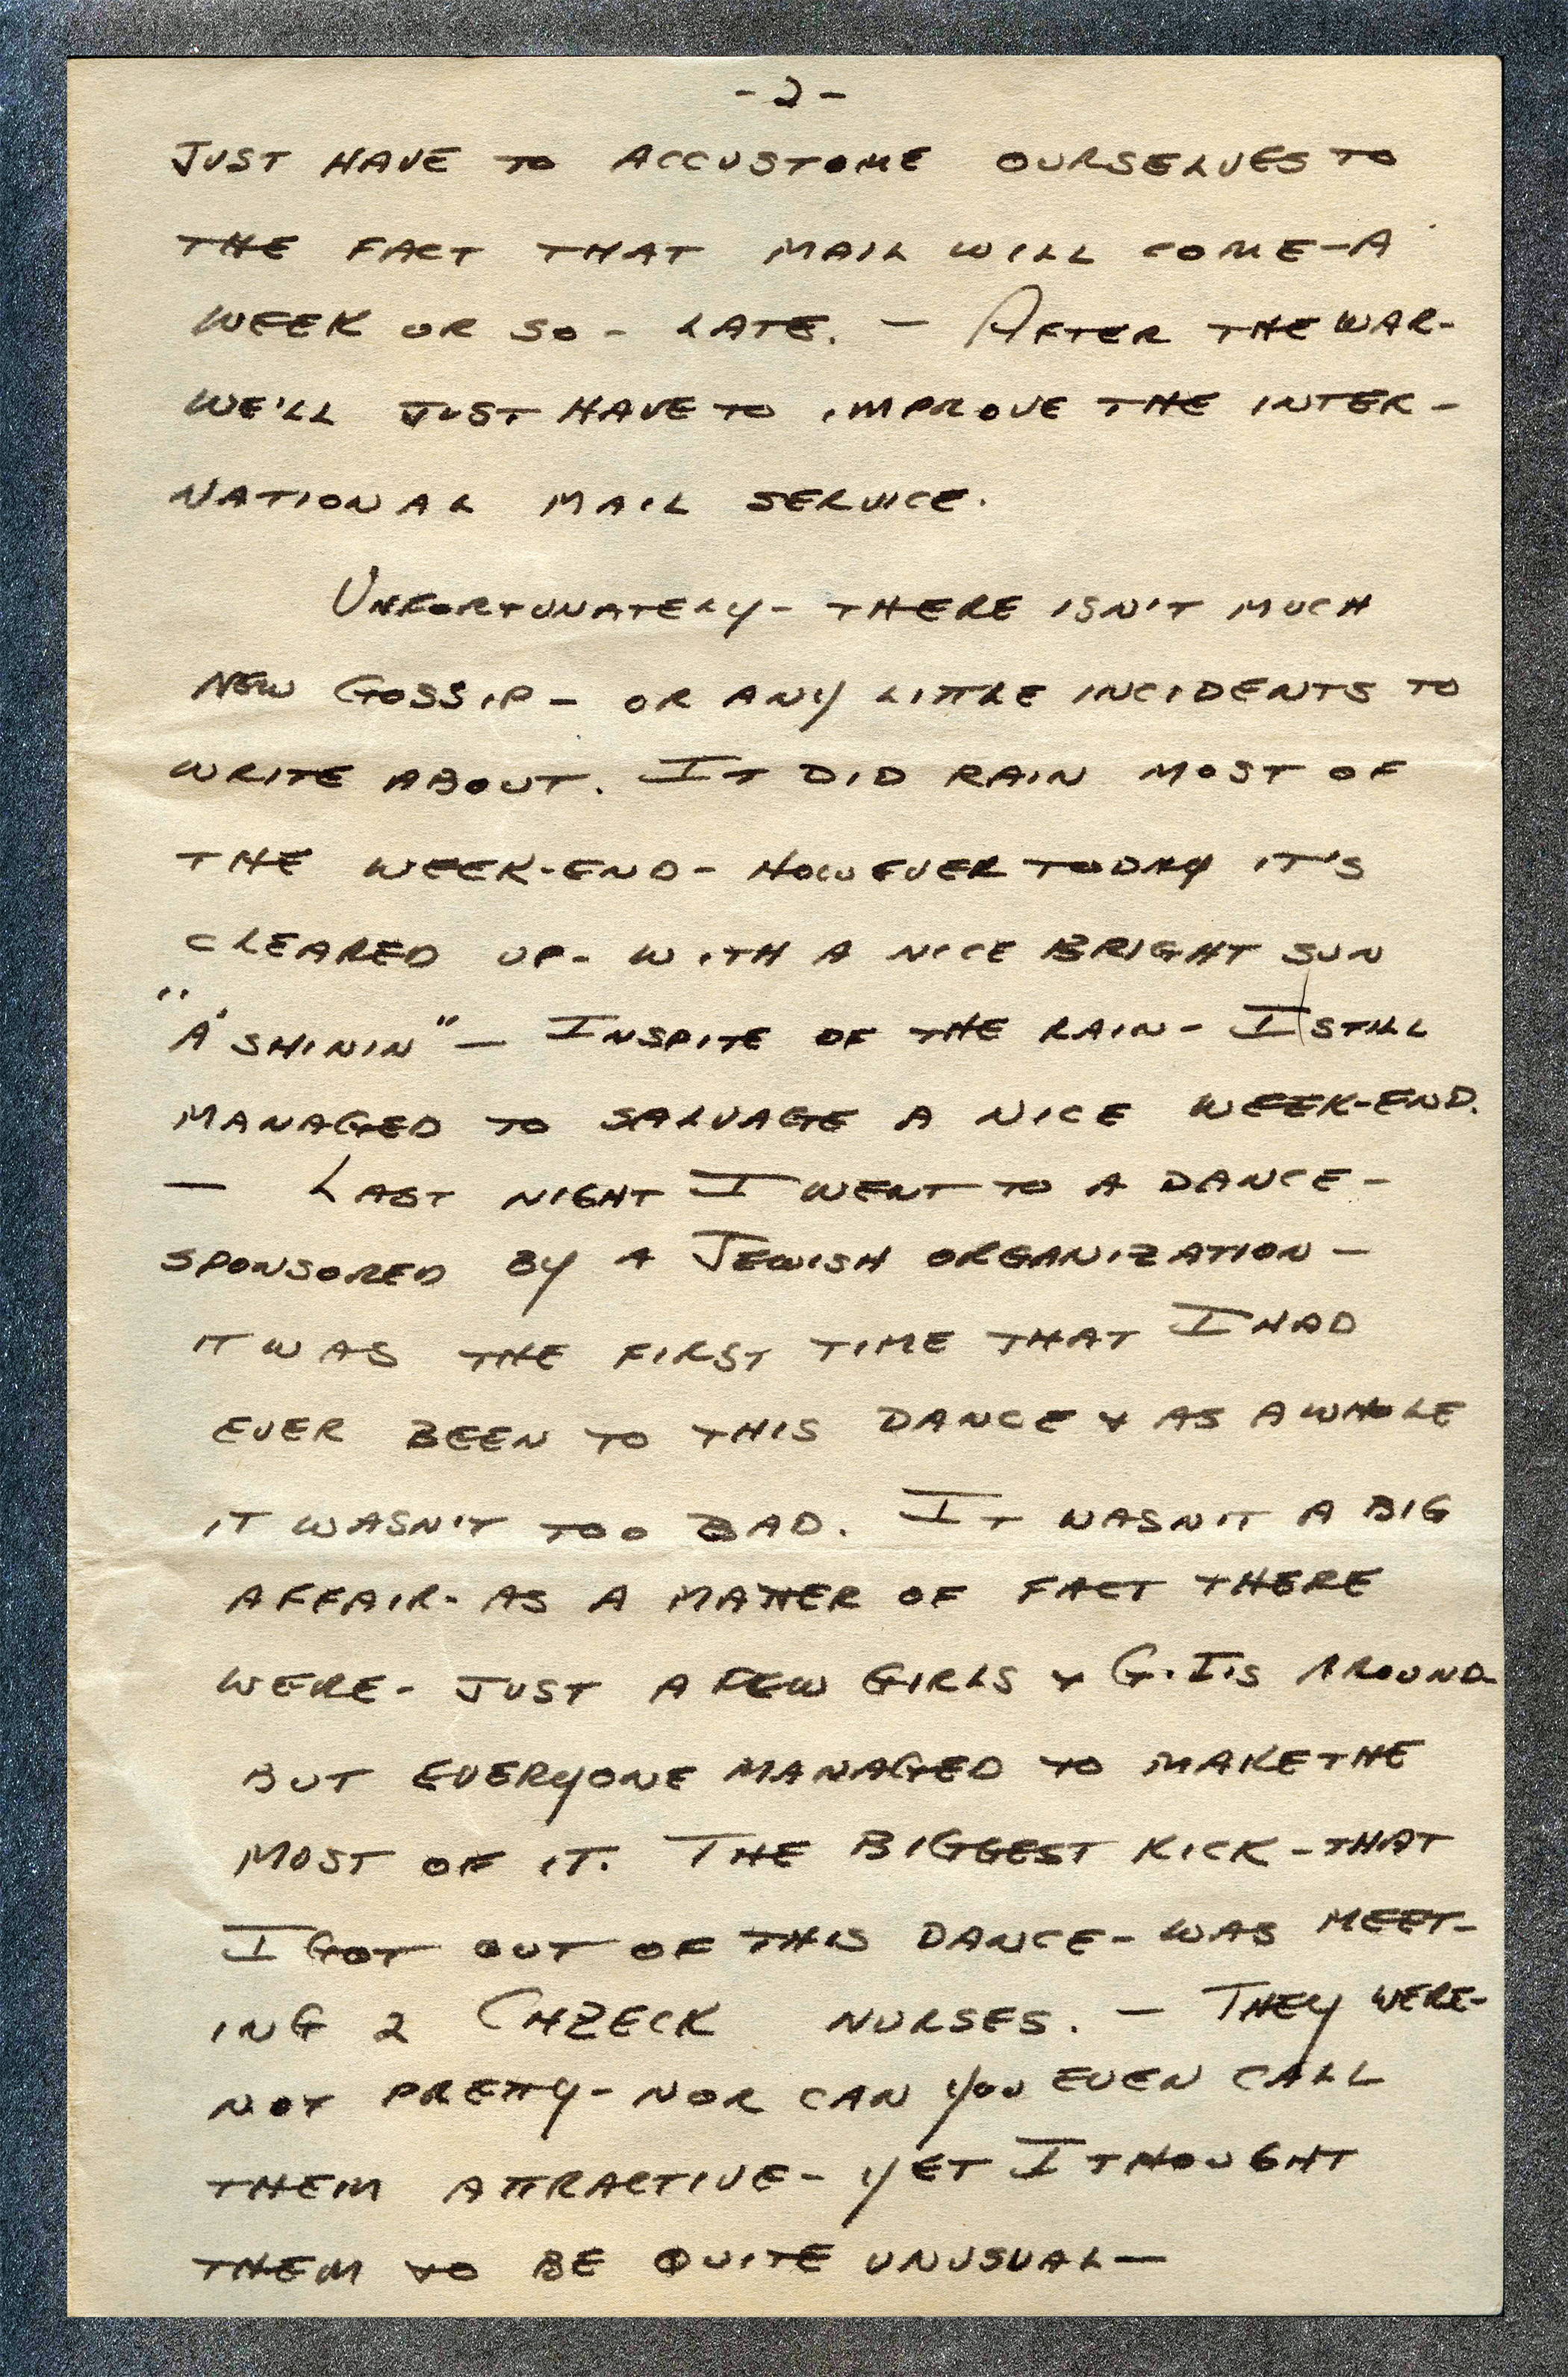 - 2 -
JUST HAVE TO ACCUSTOME OURSELVES TO
THE FACT THAT MAIL WILL COME - A
WEEK OR SO - LATE. - AFTER THE WAR -
WE'LL JUST HAVE TO IMPROVE THE INTER -
NATIONAL MAIL SERVICE.
UNFORTUNATELY - THERE ISN'T MUCH
NEW GOSSIP - OR ANY LITTLE INCIDENTS TO
WRITE ABOUT. IT DID RAIN MOST OF
THE WEEK-END - HOWEVER TODAY IT'S
CLEARED UP - WITH A NICE BRIGHT SUN
"A' SHININ" - INSPITE OF THE RAIN - I STILL
MANAGED TO SALVAGE A NICE WEEK-END.
- LAST NIGHT I WENT TO A DANCE -
SPONSORED BY A JEWISH ORGANIZATION -
IT WAS THE FIRST TIME THAT I HAD
EVER BEEN TO THIS DANCE & AS A WHOLE
IT WASN'T TOO BAD. IT WASN'T A BIG
AFFAIR - AS A MATTER OF FACT THERE
WERE - JUST A FEW GIRLS & G.I.'S AROUND -
BUT EVERYONE MANAGED TO MAKE THE
MOST OF IT. THE BIGGEST KICK - THAT
I GOT OUT OF THIS DANCE - WAS MEET -
ING 2 CHZECK NURSES. - THEY WERE -
NOT PRETTY - NOR CAN YOU EVEN CALL
THEM ATTRACTIVE - YET I THOUGHT
THEM TO BE QUITE UNUSUAL -